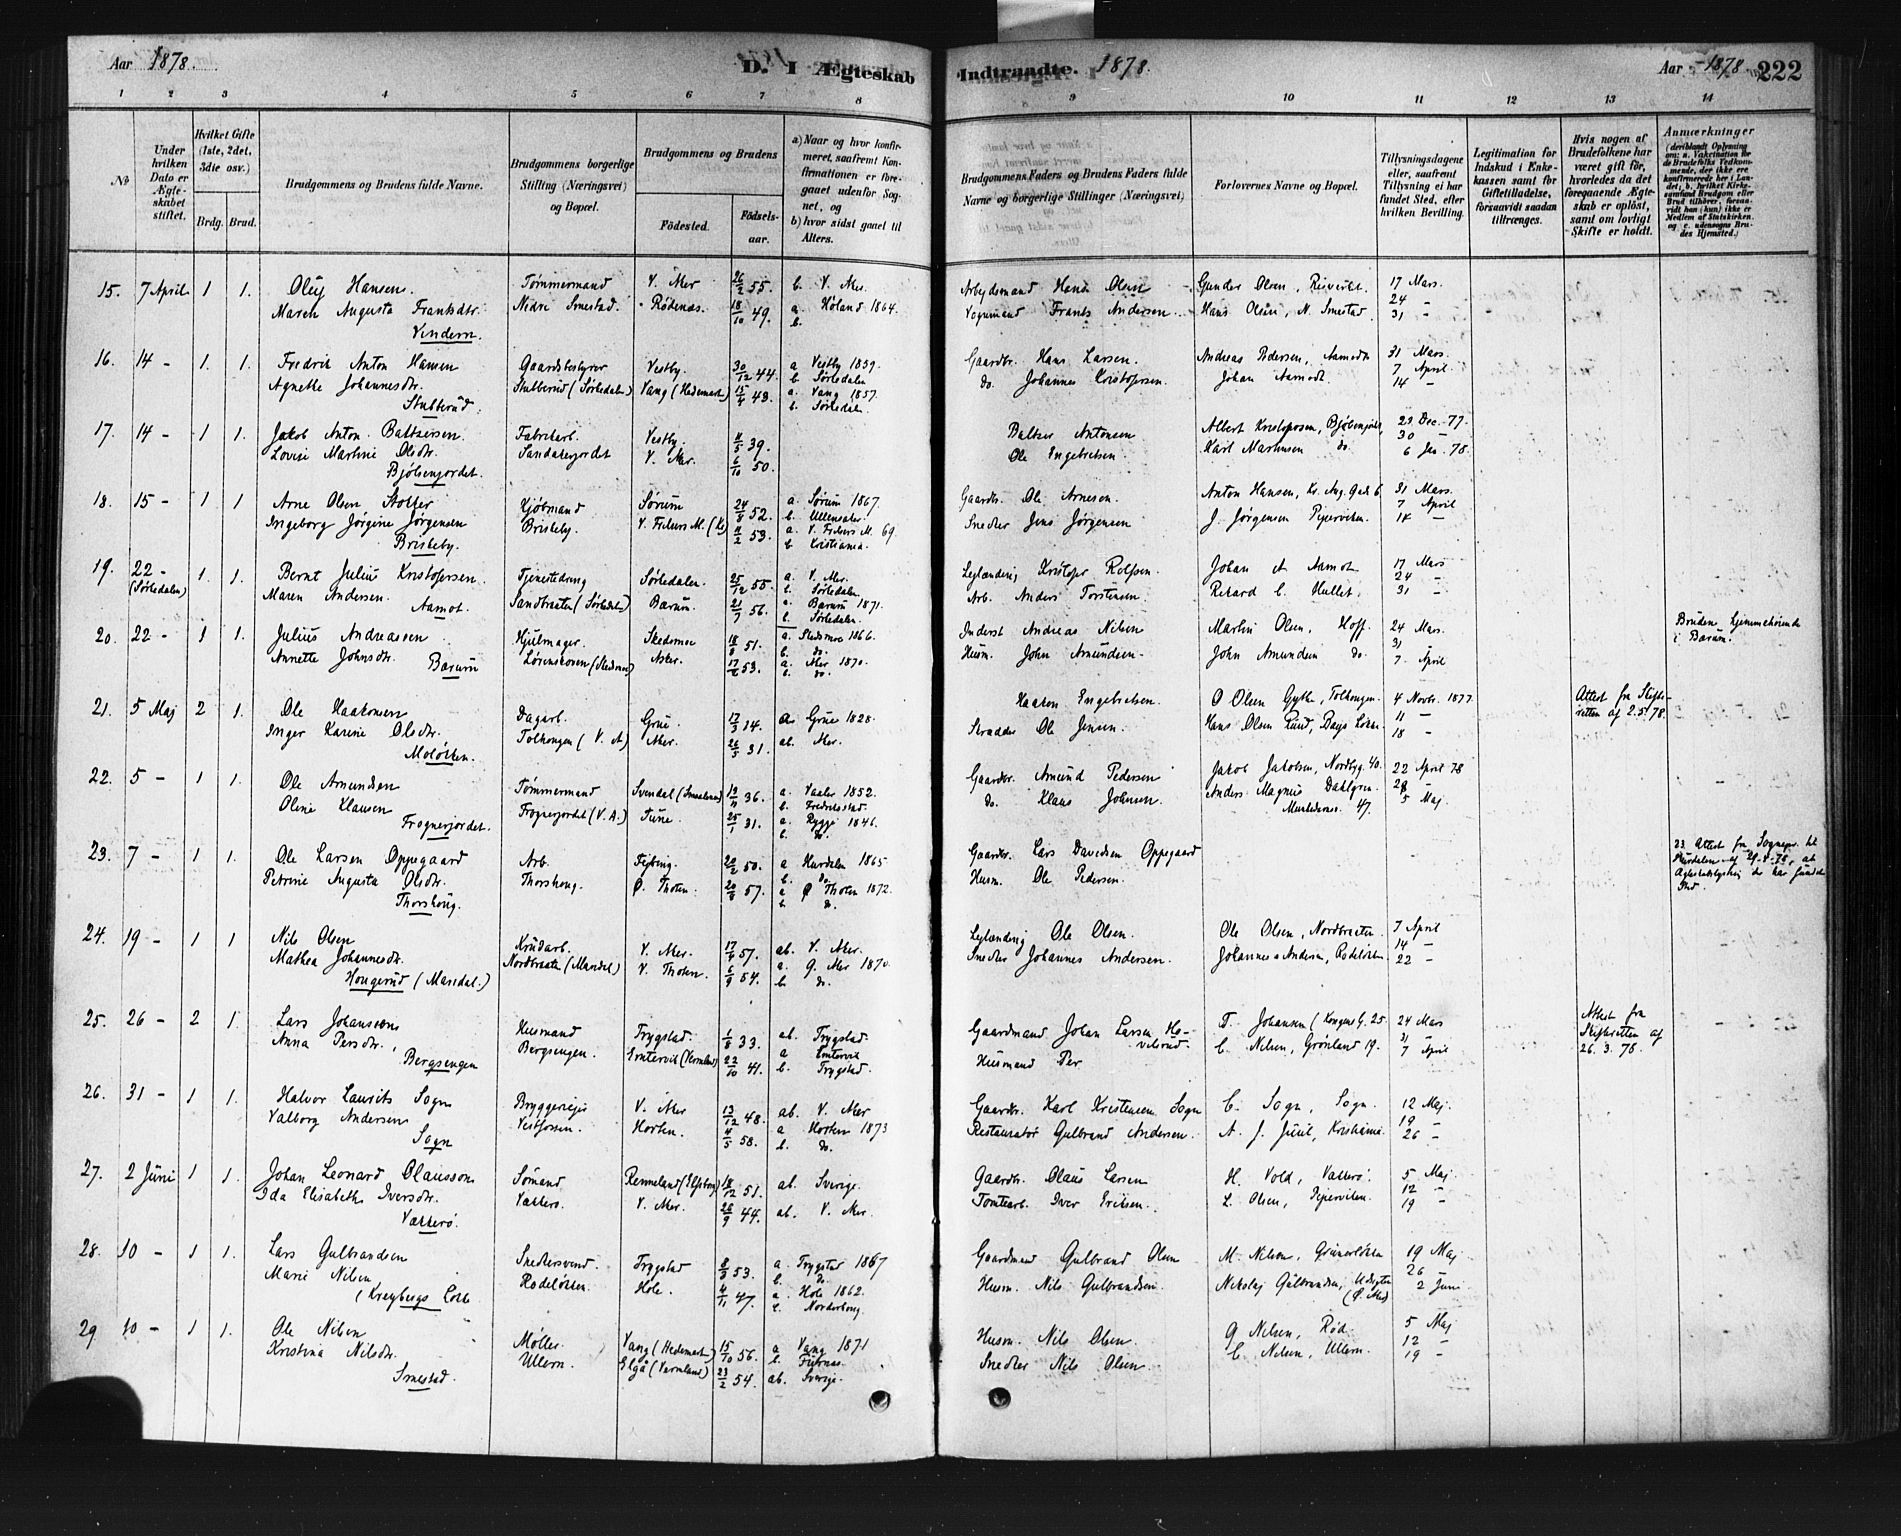 Aar 1878.
D. I Ægteskab
Indtraadte. 1878.
Aar 1878. 222
1 2 3 4 5 6 7 8 9 10 11 12 13 14
No
Under hvilken Dato er Ægteskabet stiftet.
Hvilket Gifte (1ste, 2det, 3die osv.)
Brdg. Brud.
Brudgommens og Brudens fulde Navne.
Brudgommens borgerlige Stilling (Næringsvei) og Bopæl.
Brudgommens og Brudens
Fødested. Fødselsaar.
a) Naar og hvor konfirmeret, saafremt Konfirmationen er foregaaet udenfor Sognet, og
b) hvor sidst gaaet til Alters.
Brudgommens Faders og Brudens Faders fulde Navne og borgerlige Stillinger (Næringsvei)
Forlovernes Navne og Bopæl.
Tillysningsdagene eller, saafremt Tillysning ei har fundet Sted, efter hvilken Bevilling.
Legitimation for Indskud i Enkekassen samt for Giftetilladelse, forsaavidt saadan tiltrænges.
Hvis nogen af Brudefolkene har været gift før, hvorledes da det foregaaende Ægteskab er opløst, samt om lovligt Skifte er holdt.
Anmærkninger
15. 7 April 1 1. Oluf Hansen Tømmermand V. Aker 26/2 55. b. V. Aker Arbeidsmand Hans Olsen Gunder Olsen, 17 Mars.
Maren Augusta Frantsdtr. Nedre Smestad Rødenæs. 18/10 49. a. Høland 1864. Frants Andersen Hans Olsen, N. Smestad 24 –
Vindern b. 31 –
16. 14 – 1. 1. Fredrik Anton Hansen Gaardsbestyrer Vestby. 30/12 44. a Vestby 1859. Gaardbr. Hans Larsen. Andreas Pedersen, 31 Mars
Agnethe Johannesdr. Stubberud (Sørkedalen) Vang (Hedemark) 15/4 43. b Sørkedalen do. Johannes Kristofersen. Johan Aamodt 7 April
Stubberud a. Vang 1857. b. Sørkedalen 14 –
17. 14 – 1 1. Jakob Anton Baltsersen. Fabrikarb. Vestby. 11/5 39. Baltser Antonsen Albert 23 Dec. 77.
Lovise Martine Olsdtr. Sandakerjordet V. Aker. 6/10 50. Ole Ingebretsen Karl Martinsen do 30 –
Bjølsenjordet. 6 Jan. 78.
18. 15 – 1 1 Arne Olsen Stolter Kjøbmand Sørum 24/8 52. a. Sørum 1867. Gaardbr. Ole Arnesen. Anton Hansen, 31 Mars
Ingeborg Jørgine Jørgensen Briskeby. 11/2 53. b. Ullensaker Snedker Jens Jørgensen J. Jørgensen Pipervik 7 April
Briskeby. b Kristiania 14 –
19. 22 – 1. 1. Bernt Julius Kristofersen Tjenestedreng Sørkedalen. 25/12 55 a. V. Aker. Leilænding Kristofer Rolfsen. Johan A Aamot 17 Mars
(Sørkedalen) Maren Andersen. Sandbraaten (Sørkedal) Bærum. 21/7 56. b. Sørkedalen Arb. Anders Torstensen 24 –
Aamot. a. Bærum 1871. b. Sørkedalen 31 –
20. 22 – 1 1. Julius Andreassen Hjulmager. Skedsmo 18/8 51. a. Skedsmo 1866. Inderst Andreas Nilsen Martin Olsen, Hoff. 24 Mars. Bruden hjemmehørende i Bærum.
Annette Johnsdr. Lørenskoven (Skedsmo) Asker. 17/6 53. b. do. Husm. John Amundsen. John Amundsen do. 31 –
Bærum a. Aker 1870. b. do. 7 April
21. 5 Maj 2 1. Ole Haakonsen Dagarb. Grue. 12/3 14. a. Grue 1828. Haakon Ingebretsen. O Olsen 4 Novbr. 1877 Attest fra Skifteretten af 2.5.78.
Inger Karine Olsdr. (V. A) Aker. 26/5 31. ab. Aker. Skrædder Ole Jensen. Hans Olsen 11 –
18 –
22. 5 – 1 1. Ole Amundsen Tømmermand Svendal (Smaalenene) 12/11 36. a. Vaaler 1852. Gaardbr. Amund Pedersen Jakob Jakobsen, Nordbyg. 40. 22 April 78
Oline Klausen Frognerjordet (V. A.) Tune. 25/1 31. b. Fredriksstad do. Klaus Johnsen. Anders Magnus Dahlgren. 28 –
Frognerjordet. a. Rygge 1846. b. do. 47. 5 Maj.
23. 7 – 1 1. Ole Larsen Oppegaard Arb. Fejring. 20/2 50. a Hurdalen 1865 Gaardbr. Lars Davidsen Oppegaard 23. Attest fra Sognepr. til
Petrine Augusta Olsdr. Thorshoug. Ø. Thoten 20/8 57. b. do. Husm. Ole Pedersen.
Thorshoug. a Ø Thoten 1872. b. do.
24. 19 – 1 1 Nils Olsen Krudarb. V. Aker. 17/4 57. ab. V. Aker. Leilænding Ole Olsen. Ole Olsen, Nordbraaten. 7 April
Mathea Johannesdr. Nordbraaten (Maridal) V. Thoten. 6/9 54. a. G. Aker 1870. Snedker Johannes Andersen. Johannes Andersen, Rodeløkken 14 –
Hougerud (Maridal.) b do. 22 –
25. 26 – 2 1. Lars Johannsens Husmand Trygstad 1/8 33. ab. Trygstad. Gaardmand Johan Larsen T. Johansen (Kongens G. 25. 24 Mars Attest fra Skifteretten af 26.3.78.
Anna Persdr. Bergsengen. (Vermland) 22/10 41. Husmand Per C. Nilsen, Grønland 19. 31 –
Bergsengen b. Trygstad. 7 April
26. 31 – 1 1. Halvor Laurits Sogn Bryggeriejer V. Aker 13/12 48. ab. V. Aker Gaardbr. Karl Kristensen Sogn C. Sogn, Sogn. 12 Maj.
Valborg Andersen Vestfossen. Horten. 4/5 58. a Horten 1873 Restauratør Gulbrand Andersen. A. J. Juul, Kristiania. 19 –
Sogn b. do. 26 –
27. 2 Juni 1 1. Johan Leonard Olausson Sømand Renneland (Elfsborg) 18/12 51. ab. Sverige. Gaardbr. Olaus Larsen H. Vold, Vækkerø. 5 Maj
Ida Elisabeth Iversdtr. Vækkerø. V. Aker. 26/9 44. ab. V. Aker. Tomtearb. Iver Eriksen. L. Olsen, Pipervik. 12 –
Vækkerø. 19 –
28. 10 – 1 1. Lars Gulbrandsen Snedkersvend. Trygstad 8/3 53. a. Trygstad 1867 Gaardmand Gulbrand Olsen M. Nilsen, Grünerløkken 19 Maj
Marie Nilsen Rodeløkken. Hole. 4/11 47. b. do. Husm. Nils Gulbrandsen. Nikolaj Gulbrandsen, 26 –
a. Hole 1862. b. Norderhoug. 2 Juni
29. 10 – 1 1. Ole Nilsen Møller Vang (Hedemark) 15/10 56. a Vang 1871 Husm. Nils Olsen. G Nilsen, Rød. 5 Maj
Kristina Nilsdtr. Ullern. Elgå (Vermland) 23/2 54. b. Furnæs. Snedker Nils Olsen C. Nilsen, Ullern. 12 –
Smestad. ab. Sverige. 19 –